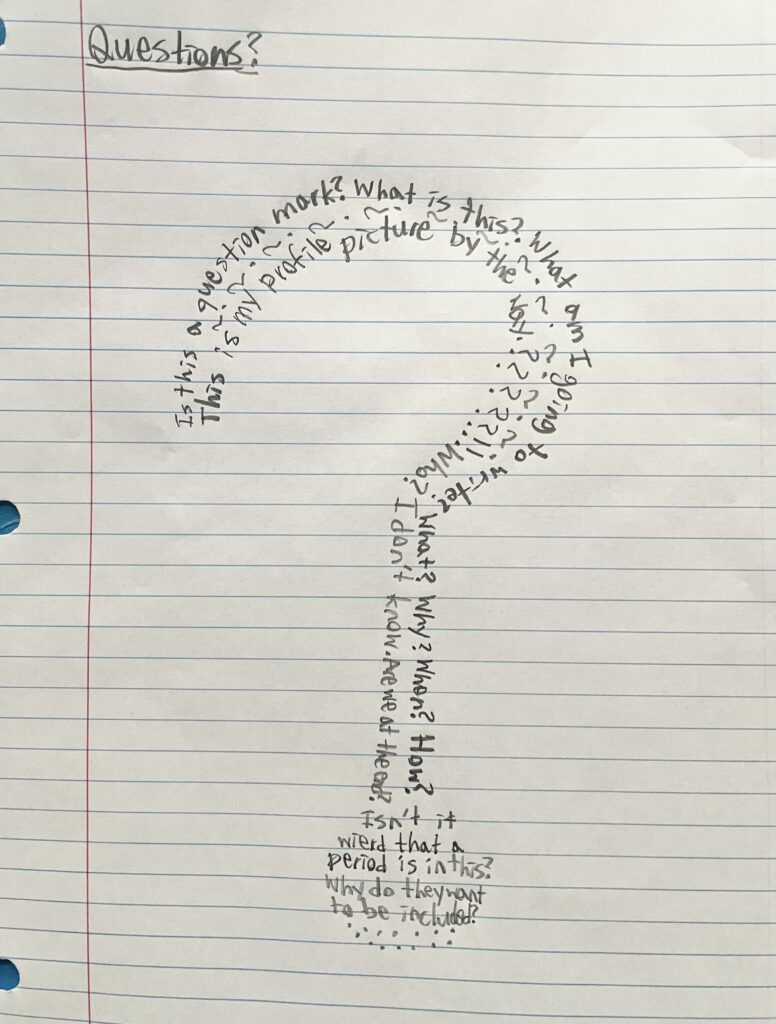 Questions?
Is this a question mark? What is this? What am I going to write?
This is my profile picture by the
Who?
What? Why? When? How?
I don't know. Are we at the end?
Isn't it
wierd that a
period is in this?
Why do they want
to be included?